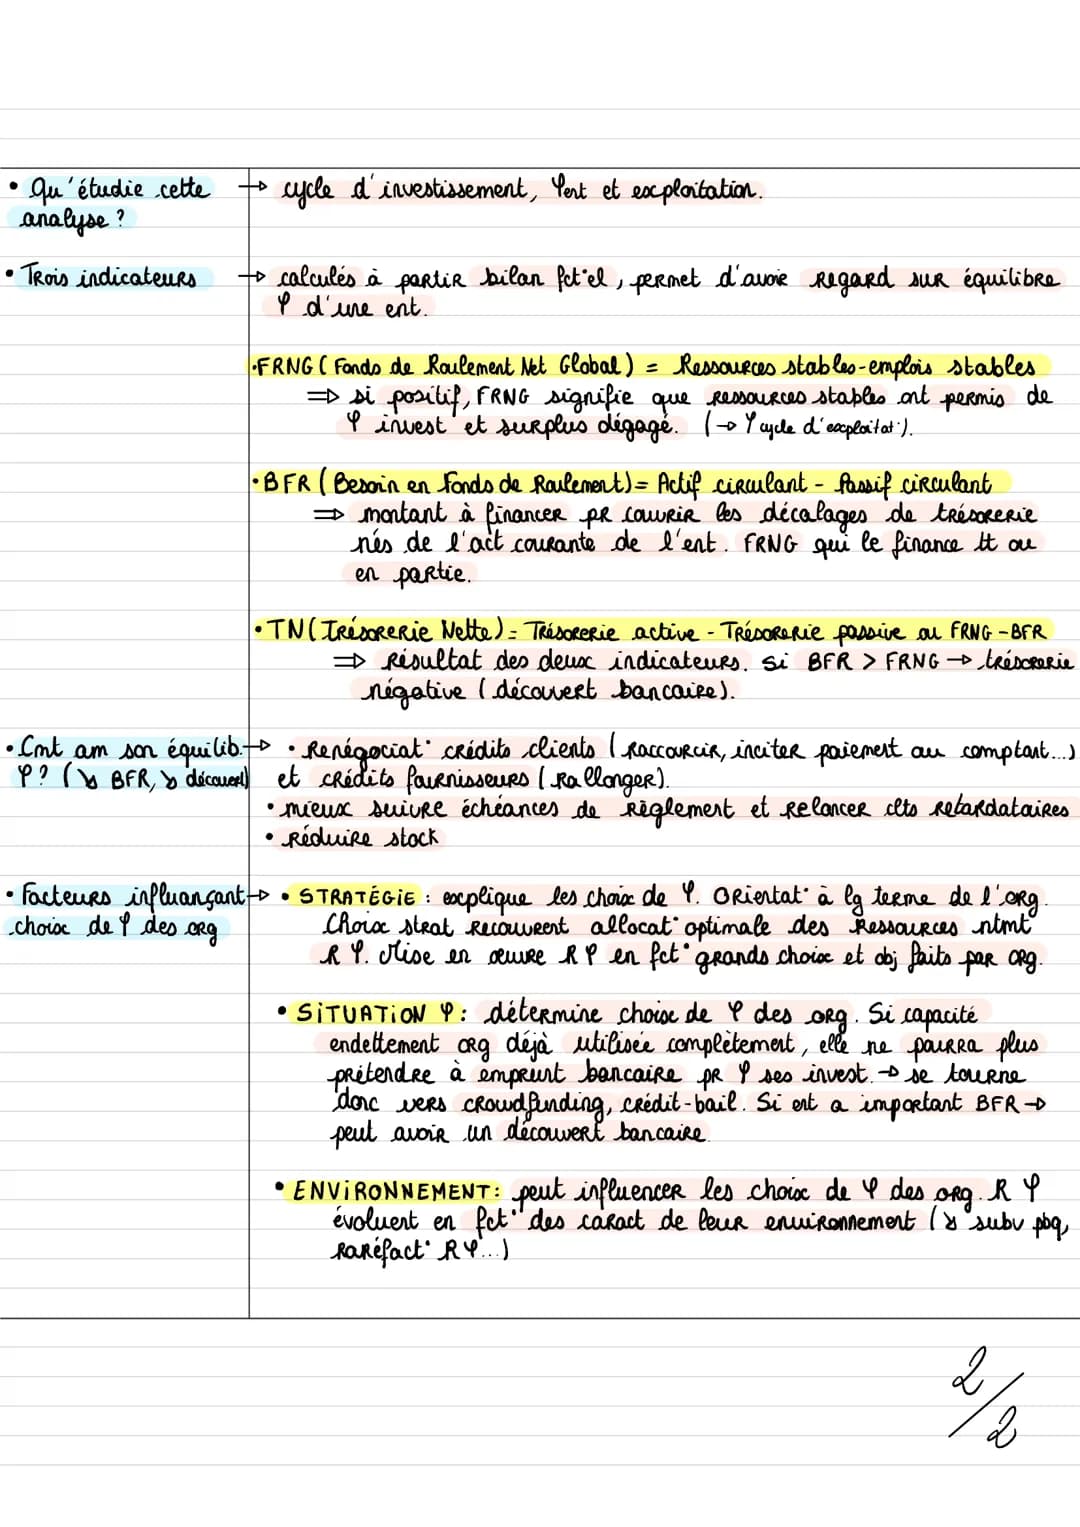 • Qu'étudie cette → cycle d'investissement, Ψent et exploitation.
analyse ?
• Trois indicateurs → calculés à partir bilan fct°el, permet d'avoir regard sur équilibre
Ψ d'une ent.
• FRNG (Fonds de Roulement Net Global) = Ressources stables-emplois stables
⇒ si positif, FRNG signifie que ressources stables ont permis de
Ψ invest et surplus dégagé. (→ Ψ cycle d'exploitat°).
• BFR (Besoin en Fonds de Roulement) = Actif circulant - Passif circulant
⇒ montant à financer pr couvrir les décalages de trésorerie
nés de l'act courante de l'ent. FRNG qui le finance tt ou
en partie.
• TN (Trésorerie Nette) = Trésorerie active - Trésorerie passive ou FRNG - BFR
⇒ résultat des deux indicateurs. si BFR > FRNG → trésorerie
négative (découvert bancaire).
• Cmt am son équilib. → • Renégociat° crédits clients (raccourcir, inciter paiement au comptant...)
Ψ? (↘ BFR, ↘ découvert) et crédits fournisseurs (rallonger).
• mieux suivre échéances de règlement et relancer clts retardataires
• Réduire stock
• Facteurs influançant → • STRATÉGIE : explique les choix de Ψ. Orientat° à lg terme de l'org.
choix de Ψ des org Choix strat recouvrent allocat° optimale des ressources ntmt
R Ψ. Mise en œuvre R Ψ en fct° grands choix et obj faits par org.
• SITUATION Ψ : détermine choix de Ψ des org. Si capacité
endettement org déjà utilisée complètement, elle ne pourra plus
prétendre à emprunt bancaire pr Ψ ses invest. → se tourne
donc vers crowdfunding, crédit-bail. Si ent a important BFR →
peut avoir un découvert bancaire.
• ENVIRONNEMENT : peut influencer les choix de Ψ des org. R Ψ
évoluent en fct° des caract de leur environnement (↘ subv pbq,
raréfact° R Ψ...)
2/2